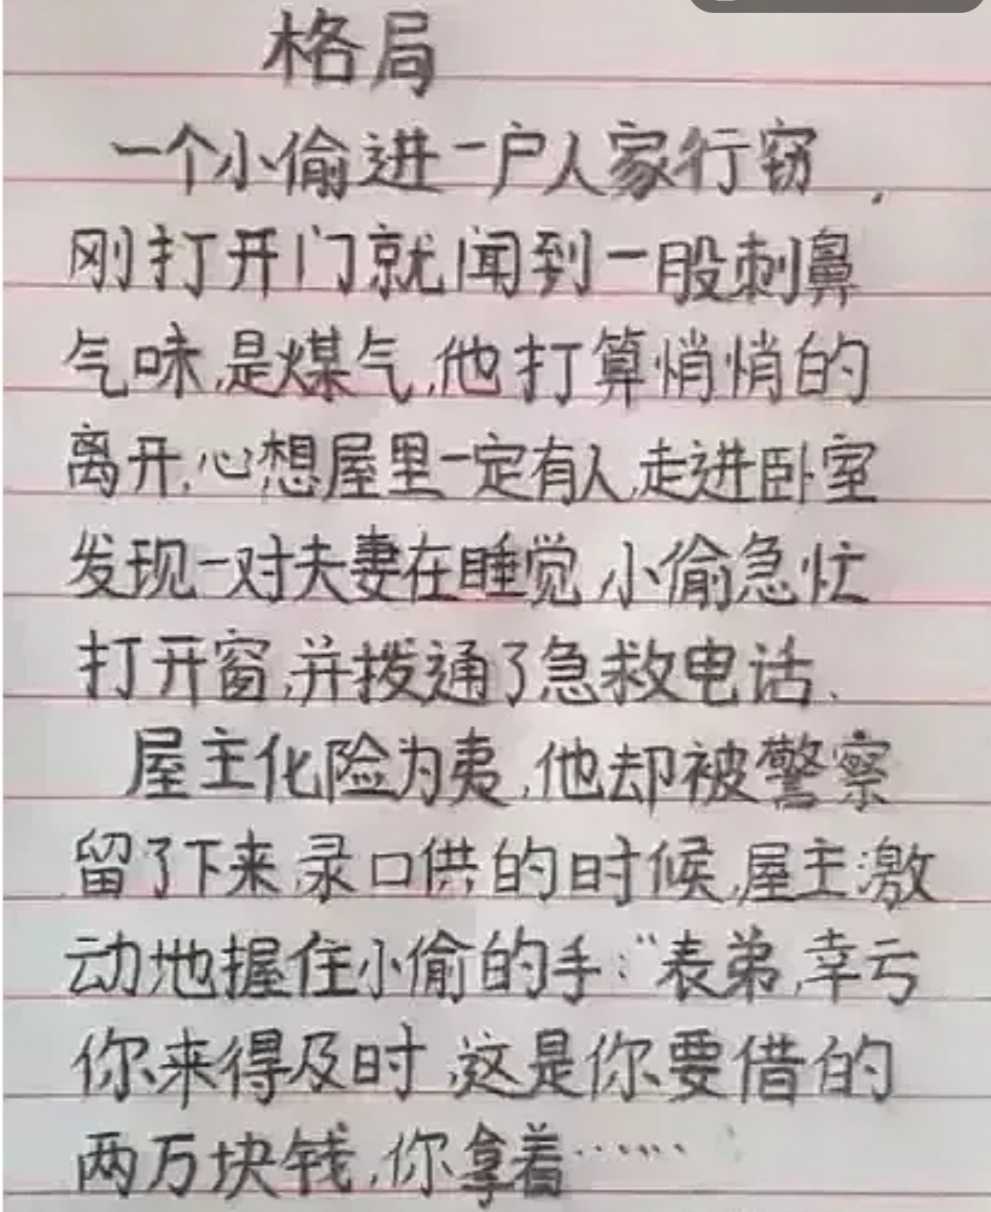 格局
一个小偷进一户人家行窃,
刚打开门就闻到一股刺鼻
气味,是煤气,他打算悄悄的
离开,心想屋里一定有人,走进卧室
发现一对夫妻在睡觉,小偷急忙
打开窗,并拨通了急救电话.
屋主化险为夷,他却被警察
留了下来,录口供的时候,屋主激
动地握住小偷的手:“表弟,幸亏
你来得及时,这是你要借的
两万块钱,你拿着……